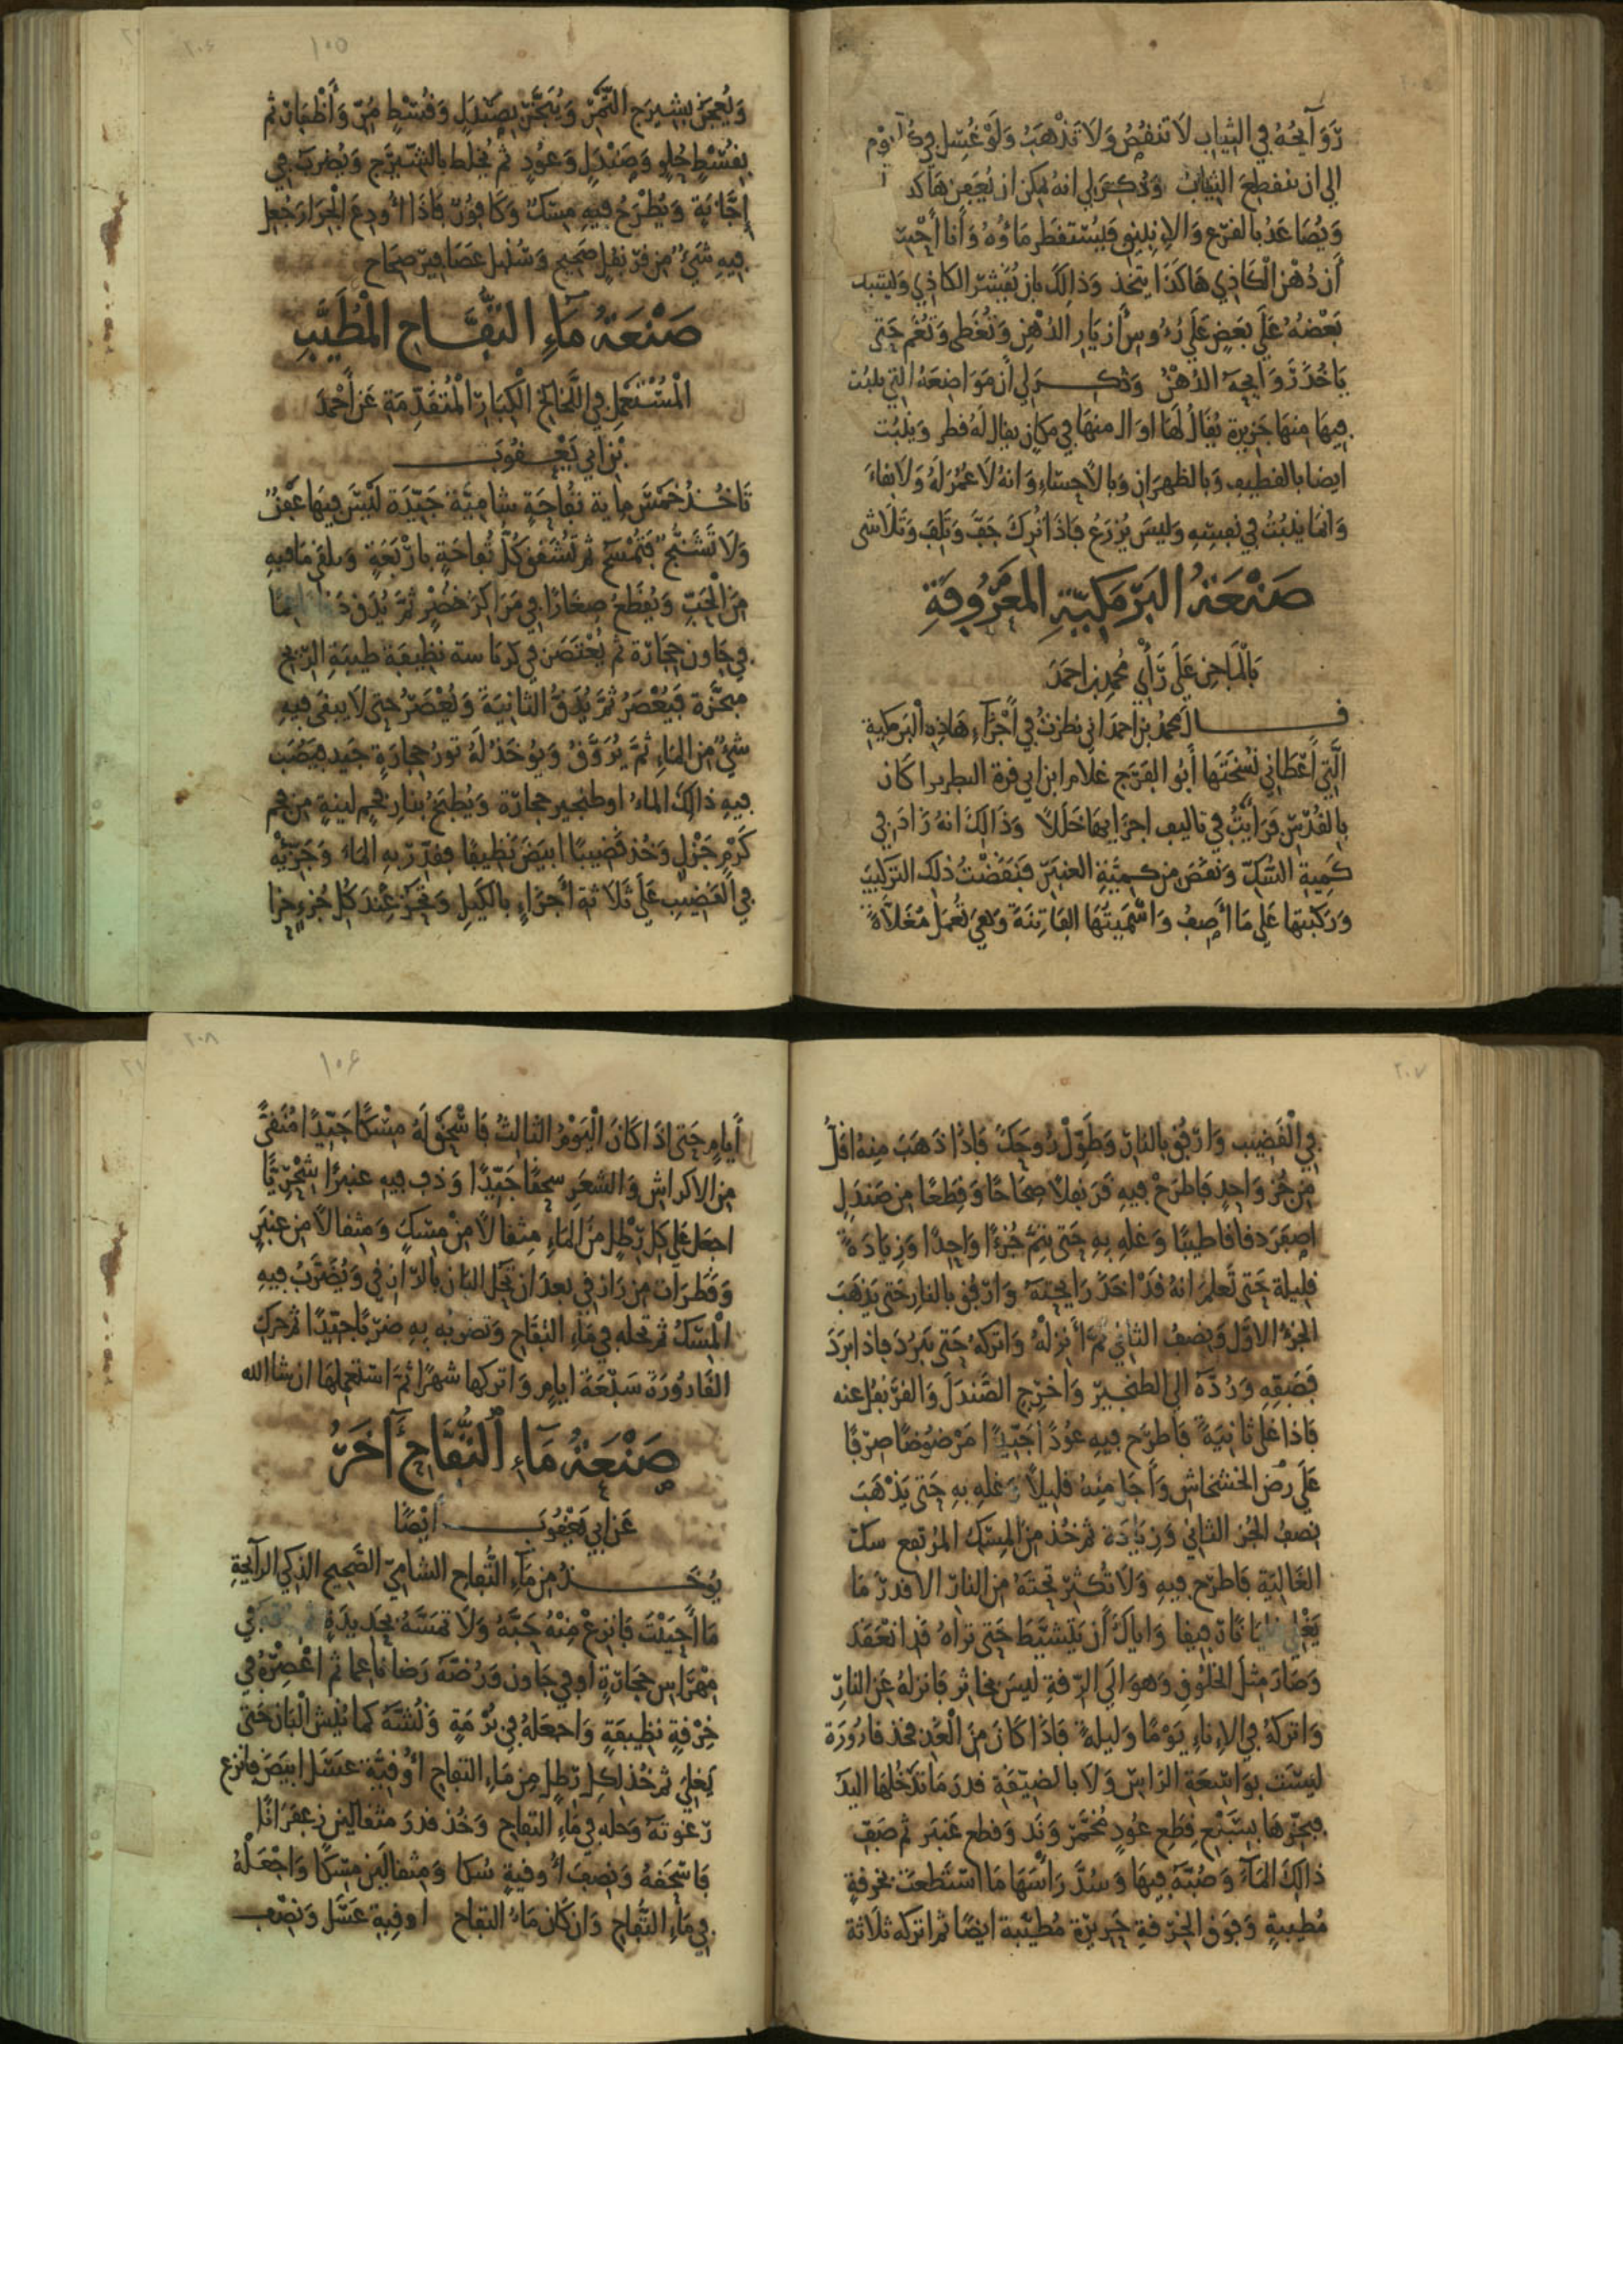 رَوَايحُهُ في الثياب لا تنفُضُ ولا تَذهَبُ ولَوْ غُسِل في كُل يوْم
الي ان ينقطِعَ الثيابُ وذُكِرَ لي انهُ يمكن ان يُعجن هَاكَذ
ويُصَاعَدُ بالقرَع والانبيق فيُستقطَر مَاؤُهُ وَأنا أُحبّ
أن دُهْن الكَاذِي هَاكَذَا يتخذ وذالِكَ بان يُقشّر الكاذِي ويشبك
بَعْضُهُ عَلَى بَعَضٍ عَلَى رُءُوسِ أزيَارِ الدُهْنِ وَتُغَطى وَتُغَم حَتى
يَاخُذَ رَوَايحهَ الدُهْنُ وذُكِرَ لي أن مَوَاضِعَهُ التي ينبُت
فيهَا مِنهَا جَزيرة يُقَالُ لَهَا اوال منهَا في مَكانٍ يقال لهُ قطر وَينبُت
ايضا بالقطيف وَبالظهرَان وَبالأحسَاءِ وَانهُ لَا عُمْرَ لَهُ وَلَا بقاءَ
وَانمَا يَنبُتُ في نفسِهِ وَليسَ يُزرَعُ فَاذَا تُركَ جَفَّ وَتَلِفَ وَتَلَاشى
صَنْعَةُ البَرْمَكِيَّةِ المَعرُوفَةِ
بالمَاجِن عَلَى رَأْيِ مُحمد بن احمَدَ
قـــال مُحمدُ بن احمدَ اني نظرتُ في أجْزَآءِ هَاذِهِ الْبَرمَكيةِ
الَّتي أَعْطَاني نُسْخَتَهَا أَبُو الفَرَج غلَام ابن ابي قرة كَان
بالقُدْسِ فَرَأيتُ في تاليف اجزَايهَا خَلَلاً وَذَالِكَ انهُ زَادَ في
كَمِيةِ السُّكّ وَنقَصَ مِن كمِيَّةِ العنبَرِ فَنَقَضْتُ ذلِكَ الترَكيبَ
وَرَكبتهَا عَلَى مَا أصِفُ وَاسْمَيتُهَا الفَاتِنَةَ وَهيَ تُعمَلُ مُغَلَّاةً
وَيُعجَنُ بشيرَج التَّمْر وَيُبَخَّرُ بِصَنْدَلٍ وَقُسْطٍ مُرّ وَأَظْفَارٍ ثم
بقُسْطٍ حُلْوٍ وَصَنْدَلٍ وَعُودٍ ثم يُخلَط بالشّيرَجِ وَيُضرَبُ في
إجَّانَةٍ وَيُطْرَحُ فيهِ مِسْكٌ وَكَافُورٌ فَاذَا أُودِعَ الجِرَارَ جُعِل
فيهِ شَيْءٌ مِن قرَنفُلٍ صَحيحٍ وَسُنبُلِ عَصَافيرَ صِحَاحٍ
صَنْعَةُ مَآءِ التُّفَّاحِ المُطَيَّبِ
المُسْتَعْمَلِ في اللَّخَالِخِ الكِبَارِ المُتَقَدِّمَةِ عَنْ أَحْمَدَ
بْنِ ابي يَعْقُوبَ
تَاخُذُ خَمْسَ مِايةِ تُفَّاحَةٍ شامِيَّةٍ جَيّدَةٍ لَيْسَ فيهَا عَفَنٌ
وَلَا تَشَنُّجٌ فَتُمْسَحُ ثم تُشَقّقُ كُلّ تُفاحَةٍ بارْبَعَةٍ وَيلقى مَا فيهِ
مِنَ الْحَبّ وَيُقطَّعُ صِغَارًا في مَرَاكِنَ خُضْرٍ ثُمَّ يُدَق دَقًا نَاعِمًا
في هَاوَن حِجَارَة ثم يُعْتَصَر في كرباسة نظِيفَةٍ طيبَةِ الرّيحِ
مبَخَّرَةٍ فَيُعْصَرُ ثُمَّ يُدَقُّ الثانيَةَ وَيُعْصَرُ حَتى لَا يبقَى فيهِ
شيْءٌ مِن المَاءِ ثُمَّ يُرَوَّقُ وَيُوخَذُ لَهُ تورُ حِجارَةٍ جَيد فيُصَب
فيهِ ذالِكَ الماءُ او طنجير حجارَة وَيُطبَخُ بنارِ فحمٍ لينةٍ مِن فحم
كَرْمٍ جَزْلٍ وَخُذ قضيبًا ابيَضَ نَظيفًا فقدّرْ بهِ المَاءَ وَجَزِّيْه
في القَضيبِ عَلَى ثَلَاثَةِ أَجْزَاءٍ بالكَيلِ وَتحزّ عِندَ كُل جُزءٍ حزا
في القَضِيبِ وَارْفُق بالنارِ وَطَوِّلْ رُوحَكَ فَاذَا ذَهَبَ مِنهُ اقلُّ
مِن جُزْءٍ وَاحِدٍ فَاطرَحْ فيهِ قرَنفلًا صِحَاحًا وَقِطَعًا مِن صَندَلٍ
اصفَرَ دقاقا طيبًا وَغلهِ بهِ حَتى يَتِمَّ جُزءًا وَاحِدًا وَزيَادَةً
قليلَة حَتى تَعلمَ انهُ قَدْ اخَذَ رَايحَتهَ وَارْفُق بالنارِ حَتى يَذهَبَ
الجُزءُ الاوّل وَنِصفُ الثاني ثمَّ أَنزِلْهُ وَاترَكه حَتى يَبرُدَ فاذا برَدَ
فَصَفّهِ وَرُدَّهَ الى الطنجيرِ وَأخْرِج الصَّندَلَ وَالقرَنفُل عنه
فَاذَا غلى ثانيَةً فاطرَح فيهِ عُودًا جَيّدًا مَرْضُوضًا صِرْفًا
عَلَى رضّ الخشخاش وَأجَلَّ مِنهُ قليلاً وَغلهِ بهِ حَتى يَذْهَبَ
نِصفُ الجُزءِ الثاني وَزِيَادَة ثم خُذ مِن المِسكِ المُرتفِعِ سك
الغَاليَةِ فَاطرَح فيهِ وَلَا تُكثِر تَحْتَهُ مِن النارِ الا قدرَ مَا
يَغْلي غليَانًا رَفيقا وَاياكَ أن يَتَشيَّطَ حَتى ترَاهُ قَد انعَقَدَ
وَصَارَ مِثلَ الخَلُوقِ وَهوَ الى الرّقةِ ليسَ بخاثِرٍ فَانزِلهُ عَنِ النارِ
وَاترَكهُ في الإناءِ يَوْمًا وَليلةً فَاذَا كَانَ مِنَ الْغَدِ فخذ قارُورَة
ليسَت بوَاسِعَةِ الرَاسِ وَلَا بالضيّقةِ قدرَ مَا تدخُلهَا اليَدُ
فبخّرهَا بسَبْعِ قِطَعِ عُودٍ مُخَمَّر وَنَد وَقطعِ عَنبَر ثم صَفّ
ذالِكَ المَاءَ وَصُبَّهَ فيهَا وَسُدَّ رَأسَهَا مَا اسْتطَعتَ بخرقةٍ
مُطيبَةٍ وَفوقَ الخِرْقةِ حَريرَة مُطيّبة ايضًا ثم اترَكه ثلَاثة
أيامٍ حَتى اذَا كَانَ الْيَوْمُ الثالِثُ فَاسْحَقْ لَهُ مِسْكًا جَيّدًا مُنَقّىً
مِن الاكرَاشِ وَالشّعَرِ سحقًا جَيّدًا وَذوب فيهِ عنبرًا شِحْرِيًّا
اجعَل عَلَى كل رَطْلٍ مِنَ المَاءِ مِثقالاً مِنْ مِسْكٍ وَمِثقالاً مِن عنبَرٍ
وَقَطَرَات مِن رَازقي بعدَ ان تَحُلَّ البَانَ بالرّازقي وَيُضرَبُ فيهِ
المِسكُ ثم تحله في مَاءِ التفاح وَتضربُه بهِ ضَرْبًا جَيّدًا ثم حَرّكِ
القَارُورَة سَبْعَة ايامٍ وَاتركها شهرًا ثُمَّ اسْتعمِلهَا ان شا الله
صَنْعَةُ مَآءِ اُلتُّفَّاحِ آخَرُ
عَن ابي يَعْقُوب أَيْضًا
يُوخَــذُ مِن مَآءِ التُّفاحِ الشامِيّ الصَّحيحِ الذكي الرآيحَةِ
مَا أحبَبْتَ فَانزعْ مِنْهُ حَبَّهُ وَلَا تمسَّهُ بحَديدَةٍ في
مِهْرَاسِ حِجَارَةٍ او في هَاوَن وَرُضَّهَ رَضا نَاعمًا ثم اعْصِرْهُ في
خِرْقةٍ نظِيفَةٍ وَاجعَلهُ في بُرْمَةٍ وَنُشَّهُ كما يُنَشّ الْبَان حَتى
يَغلي ثم خُذ لِكلِ رَطلٍ مِن مَاءِ التفاح أوقِيَّة عسَل ابيَضَ فانزع
رَغوتهَ وَحله في مَاءِ التفاح وَخُذ قدرَ مثقاليَنِ زعفرَانًا
فَاسْحَقهُ وَنِصفَ أوقِيةٍ سُكا وَمِثقالَينِ مِسْكًا وَاجْعَلْهُ
في مَاءِ التُّفاح وَان كَان مَاءُ التفاح اوقيةِ عَسَل وَنصْف